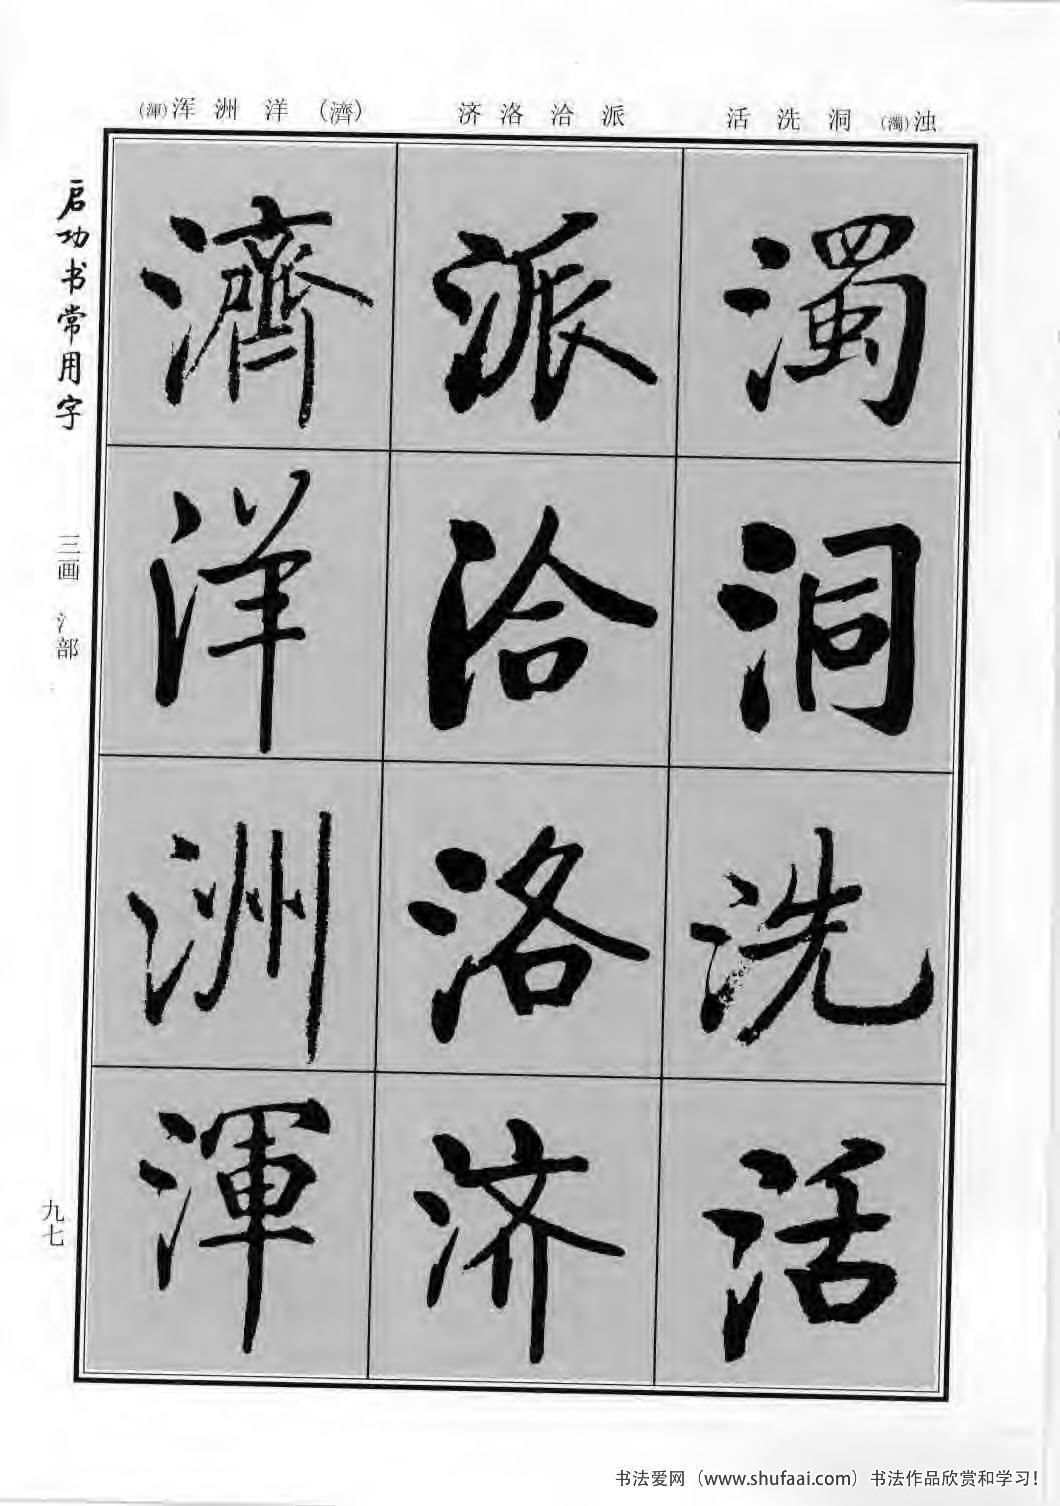 浊(濁) 洞 洗 活
派 洽 洛 济
(濟) 洋 洲 浑(渾)
濁
洞
洗
活
派
洽
洛
济
濟
洋
洲
渾
启功书常用字
三画 氵部
九七
书法爱网（www.shufaai.com）书法作品欣赏和学习！